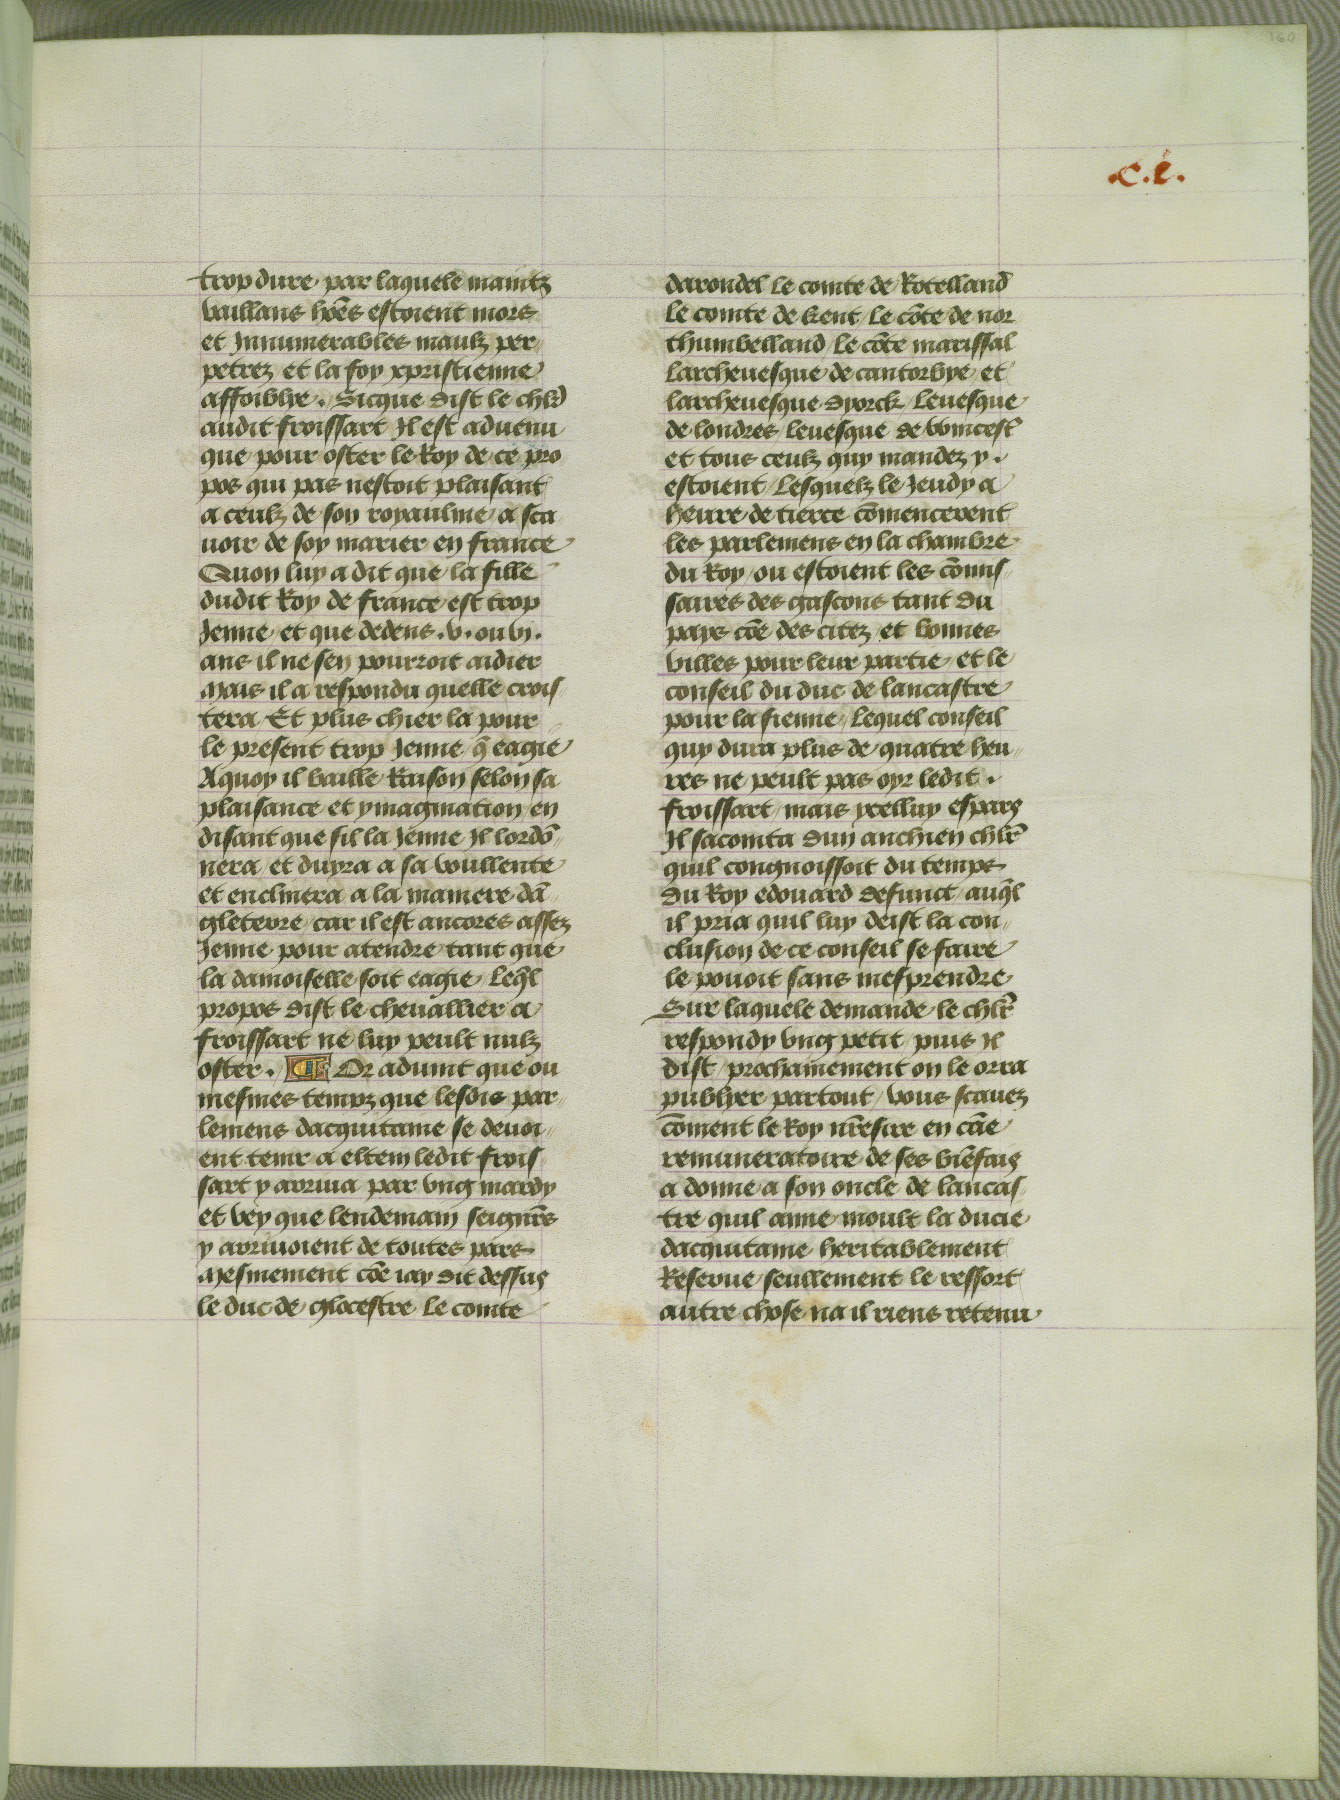 160
.C.l.
trop dure, par laquele maintz
vaillans hões estoient mors
et Innumerables maulz per-
petrez et la foy xpristienne
affoiblye. Sicque dist le chlr
audit froissart Il est advenu
que pour oster le Roy de ce pro
pos qui pas nestoit plaisant
a ceulz de son royaulme a sca
uoir de soy marier en france
Quon luy a dit que la fille
dudit Roy de france est trop
Jenne et que dedens .v. ou vj.
ans il ne sen pourroit aidier
Mais il a respondu quelle crois
tera Et plus chier la pour
le present trop Jenne q̃ eagie
Aquoy il baille Raison selon sa
plaisance et ymagination en
disant que sil la Jenne Il lordõ
nera et duyra a sa voullente
et enclinera a la maniere dã
gleterre, car il est ancores assez
Jenne pour atendre tant que
la damoiselle soit eagie, Leql̃
propos dist le chevallier a
froissart ne luy peult nulz
oster. ¶ Or aduint que ou
mesmes tempz que lesdis par-
lemens dacquitaine se deuoi-
ent tenir a eltem ledit frois
sart y arriua par vng mardy
et vey que lendemain seignr̃s
y arriuoient de toutes pars
Mesmement cõe iay dit dessus
le duc de glocestre Le comte
darondel Le comte de Rotelland
Le comte de kent, Le cõte de nor
thumbelland, Le cõte marissal
Larcheuesque de cantorbye, et
larcheuesque dyorck, Leuesque
de londres, leuesque de vvincest̃
et tous ceulz quy mandez y.
estoient, Lesquelz le Jeudy a
heure de tierce cõmencerent
les parlemens en la chambre
du Roy, ou estoient les cõmis
saires des gascons tant du
pays cõe des citez et bonnes
villes pour leur partie, et le
conseil du duc de lancastre
pour la sienne, Lequel conseil
quy dura plus de quatre heu-
res ne peult pas oyr ledit.
froissart, mais ycelluy espars
Il sacointa dun anchien chlr̃
quil congnoissoit du temps
du Roy edouard defunct, auql̃
il pria quil luy deist la con-
clusion de ce conseil se faire
le pouoit sans mesprendre
Sur laquele demande le chlr̃
respondy vng petit, puis Il
dist, prochainement on le orra
publyer partout, vous scauez
cõment le Roy nr̃e sire en cãe
remuneratoire de ses biẽfais
a donne a son oncle de lancas
tre quil aime moult la ducie
dacquitaine heritablement
Reserue seullement le ressort
autre chose na il riens retenu